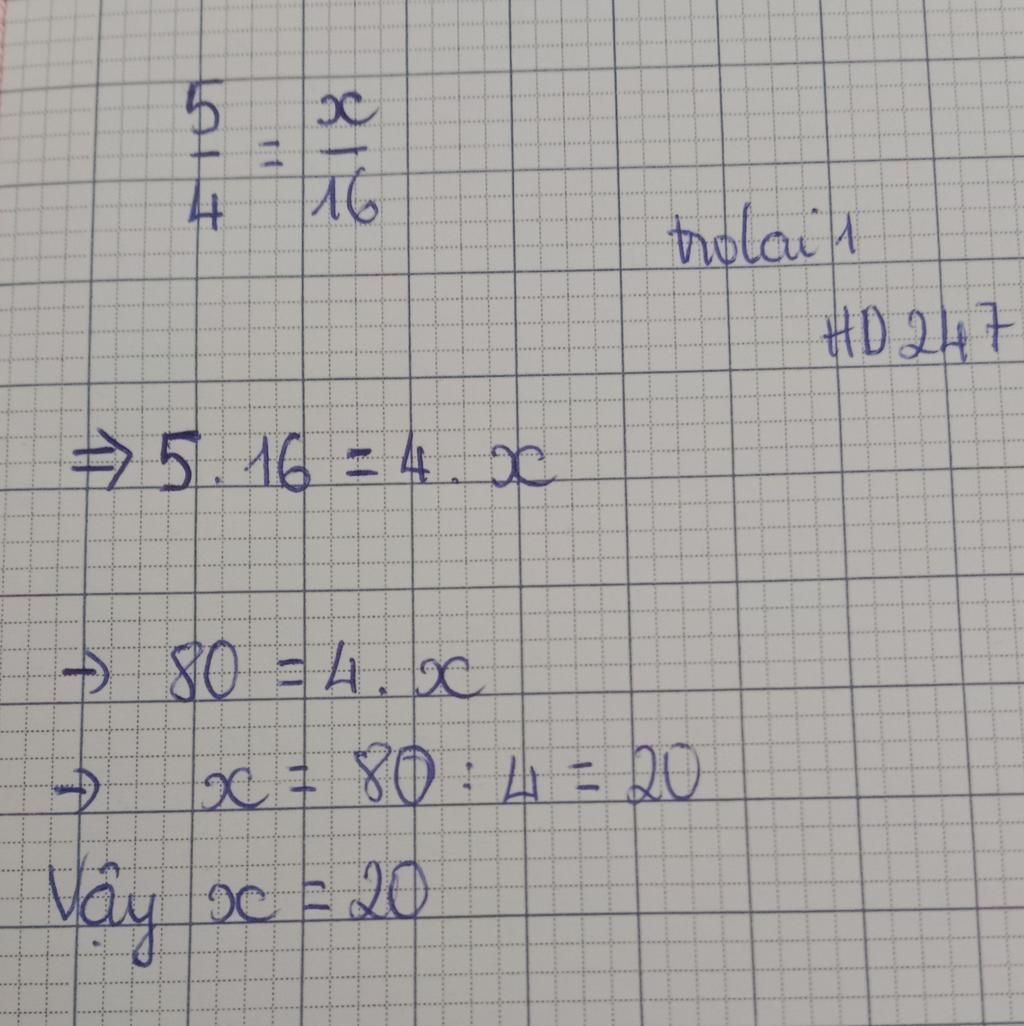 5/4 = x/16
trolai 1
HD247
⇒ 5 . 16 = 4 . x
→ 80 = 4 . x
→ x = 80 : 4 = 20
Vậy x = 20